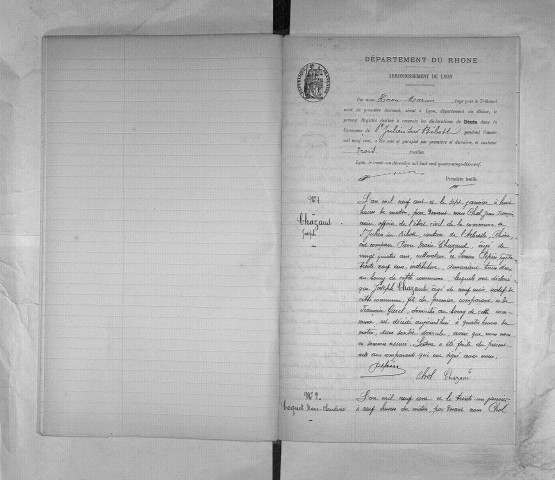 DÉPARTEMENT DU RHONE
ARRONDISSEMENT DE LYON
Par nous Juge près le Tribunal
civil de première instance, séant à Lyon, département du Rhône, le
présent Registre destiné à recevoir les déclarations de Décès dans la
Commune de St Julien sur Bibost pendant l'année
mil neuf cent, a été coté et paraphé par première et dernière, et contient
trois feuillets.
Lyon, le trente un décembre mil huit cent quatre-vingt-dix-neuf.
Première feuille
N° 1
Chazaud
Joseph
L'an mil neuf cent et le sept janvier à huit
heures du matin, par devant nous Chol Jean
maire officier de l'état civil de la commune de
St Julien sur Bibost, canton de l'Arbresle, Rhône,
est comparu Jean Marie Chazaud, âgé de
vingt quatre ans, cultivateur et Pépin
trente neuf ans, instituteur, demeurant tous deux
au bourg de cette commune, lesquels ont déclaré
que Joseph Chazaud, âgé de neuf mois, natif de
cette commune, fils du premier comparant et de
Françoise domicilié au bourg de cette com
mune, est décédé aujourd'hui à quatre heures du
matin, dans son domicile, ainsi que nous nous
en sommes assuré. Lecture a été faite du présent
acte aux comparants qui ont signé avec nous.
Pépin
Chol Chazaud
N° 2
L'an mil neuf cent et le trente un janvier
à neuf heures du matin, par devant nous Chol